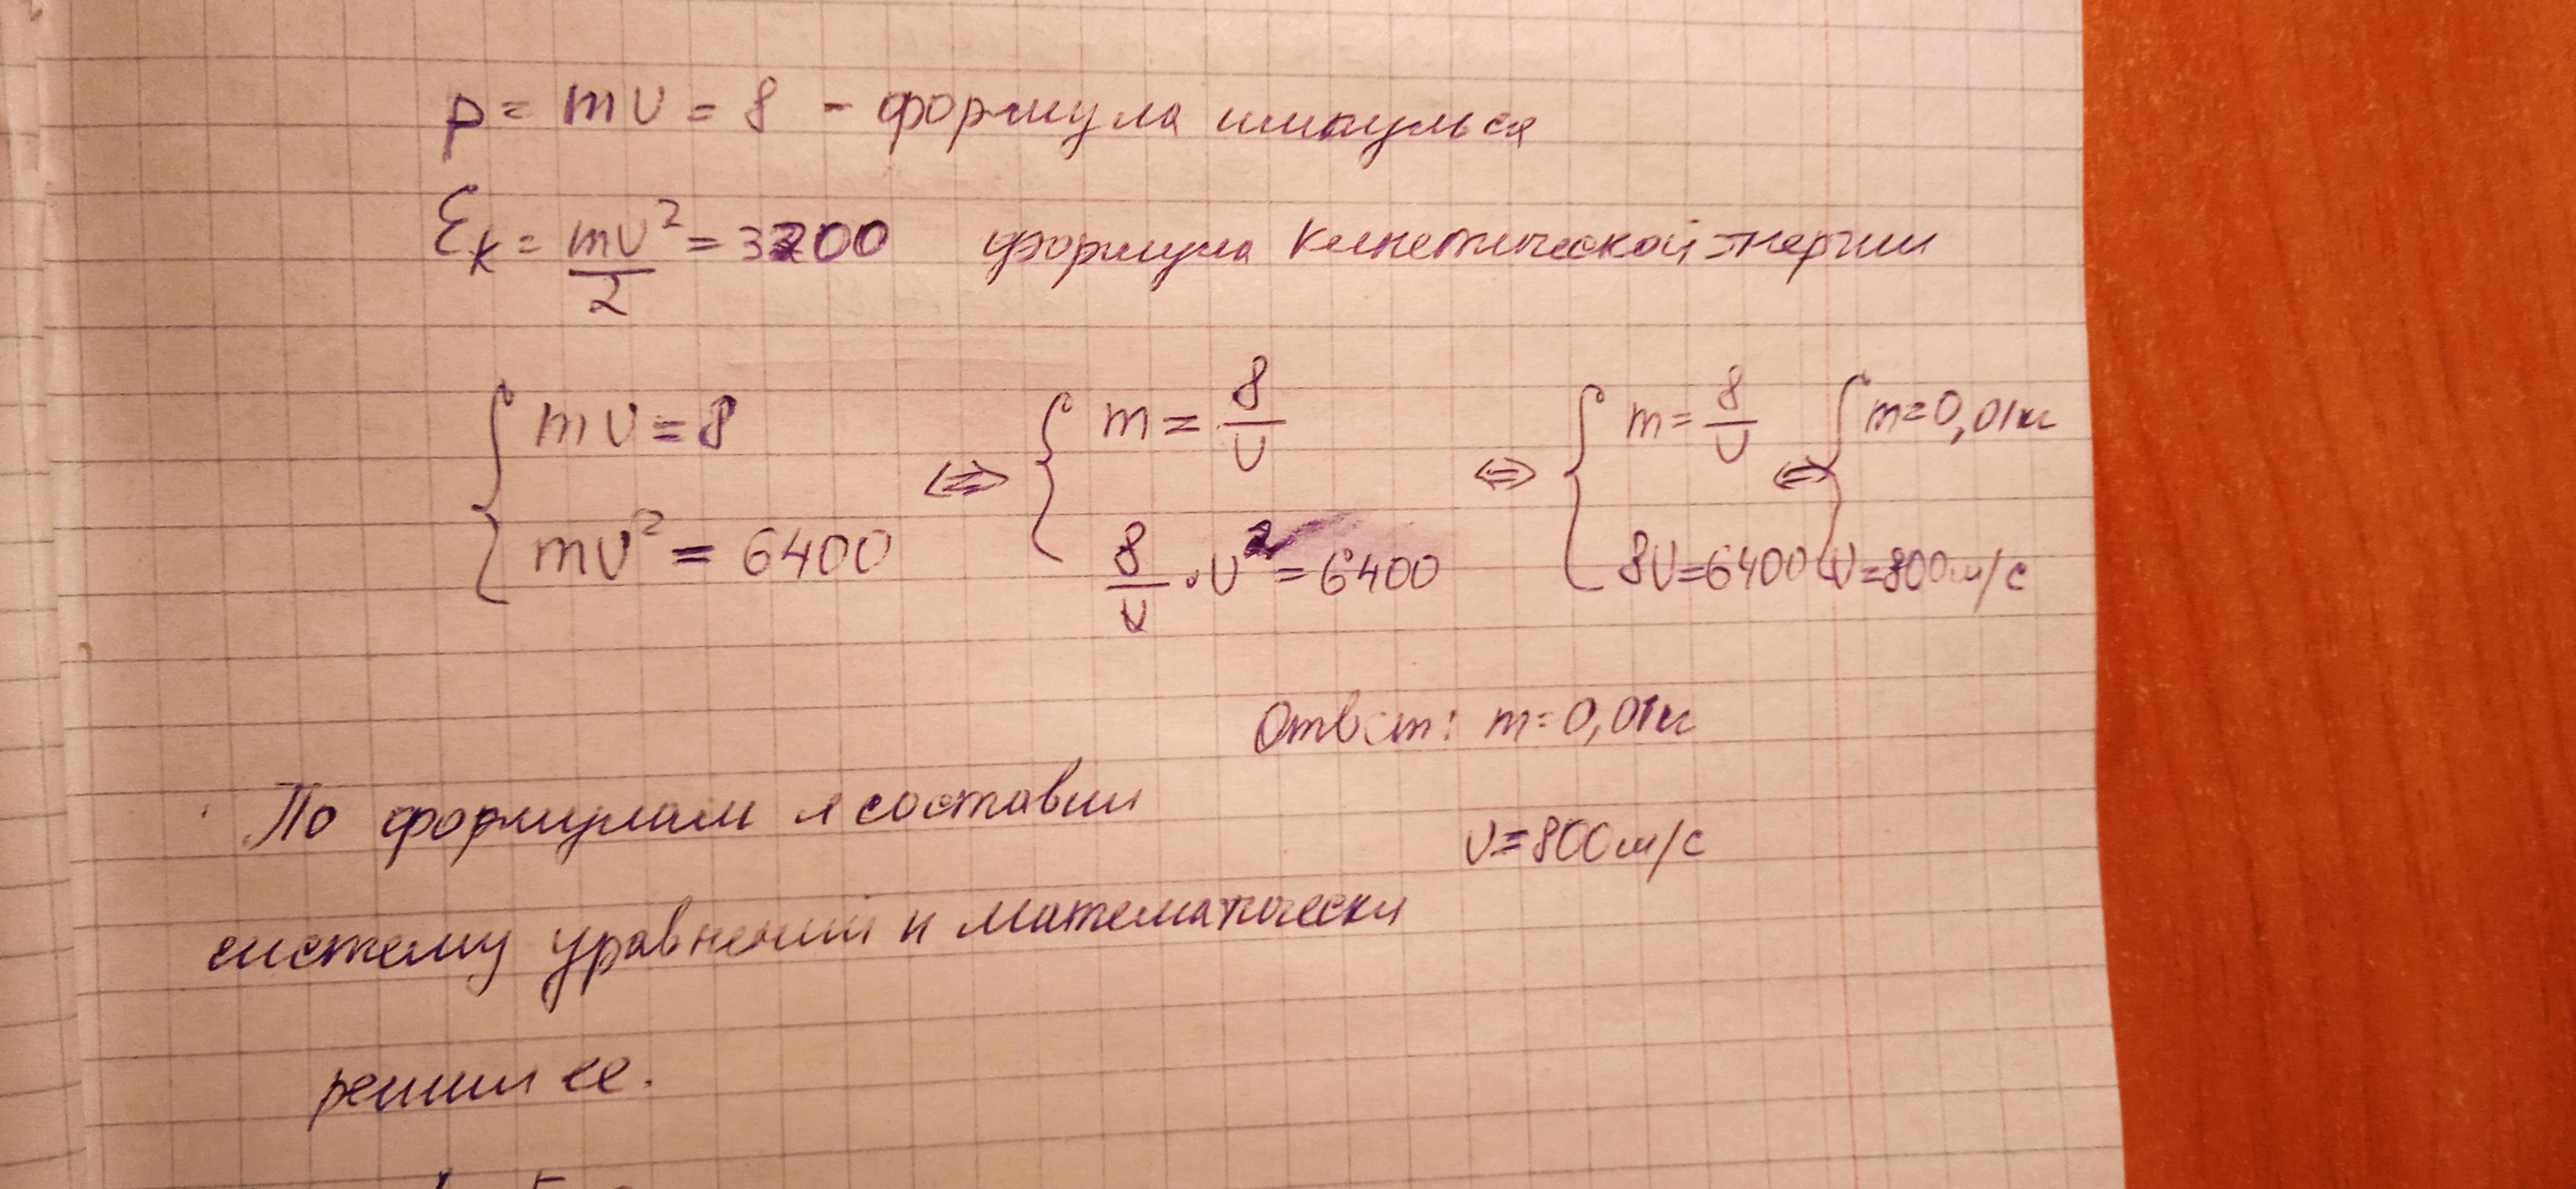 p = mv = 8 - формула импульса
Eк = mv²/2 = 3200 формула кинетической энергии
{ mv = 8 ⇔ { m = 8/v ⇔ { m = 8/v ⇔ { m = 0,01кг
mv² = 6400 8/v · v² = 6400 8v = 6400 v = 800м/с
Ответ: m = 0,01кг
По формулам я составил
v = 800м/с
систему уравнений и математически
решил ее.